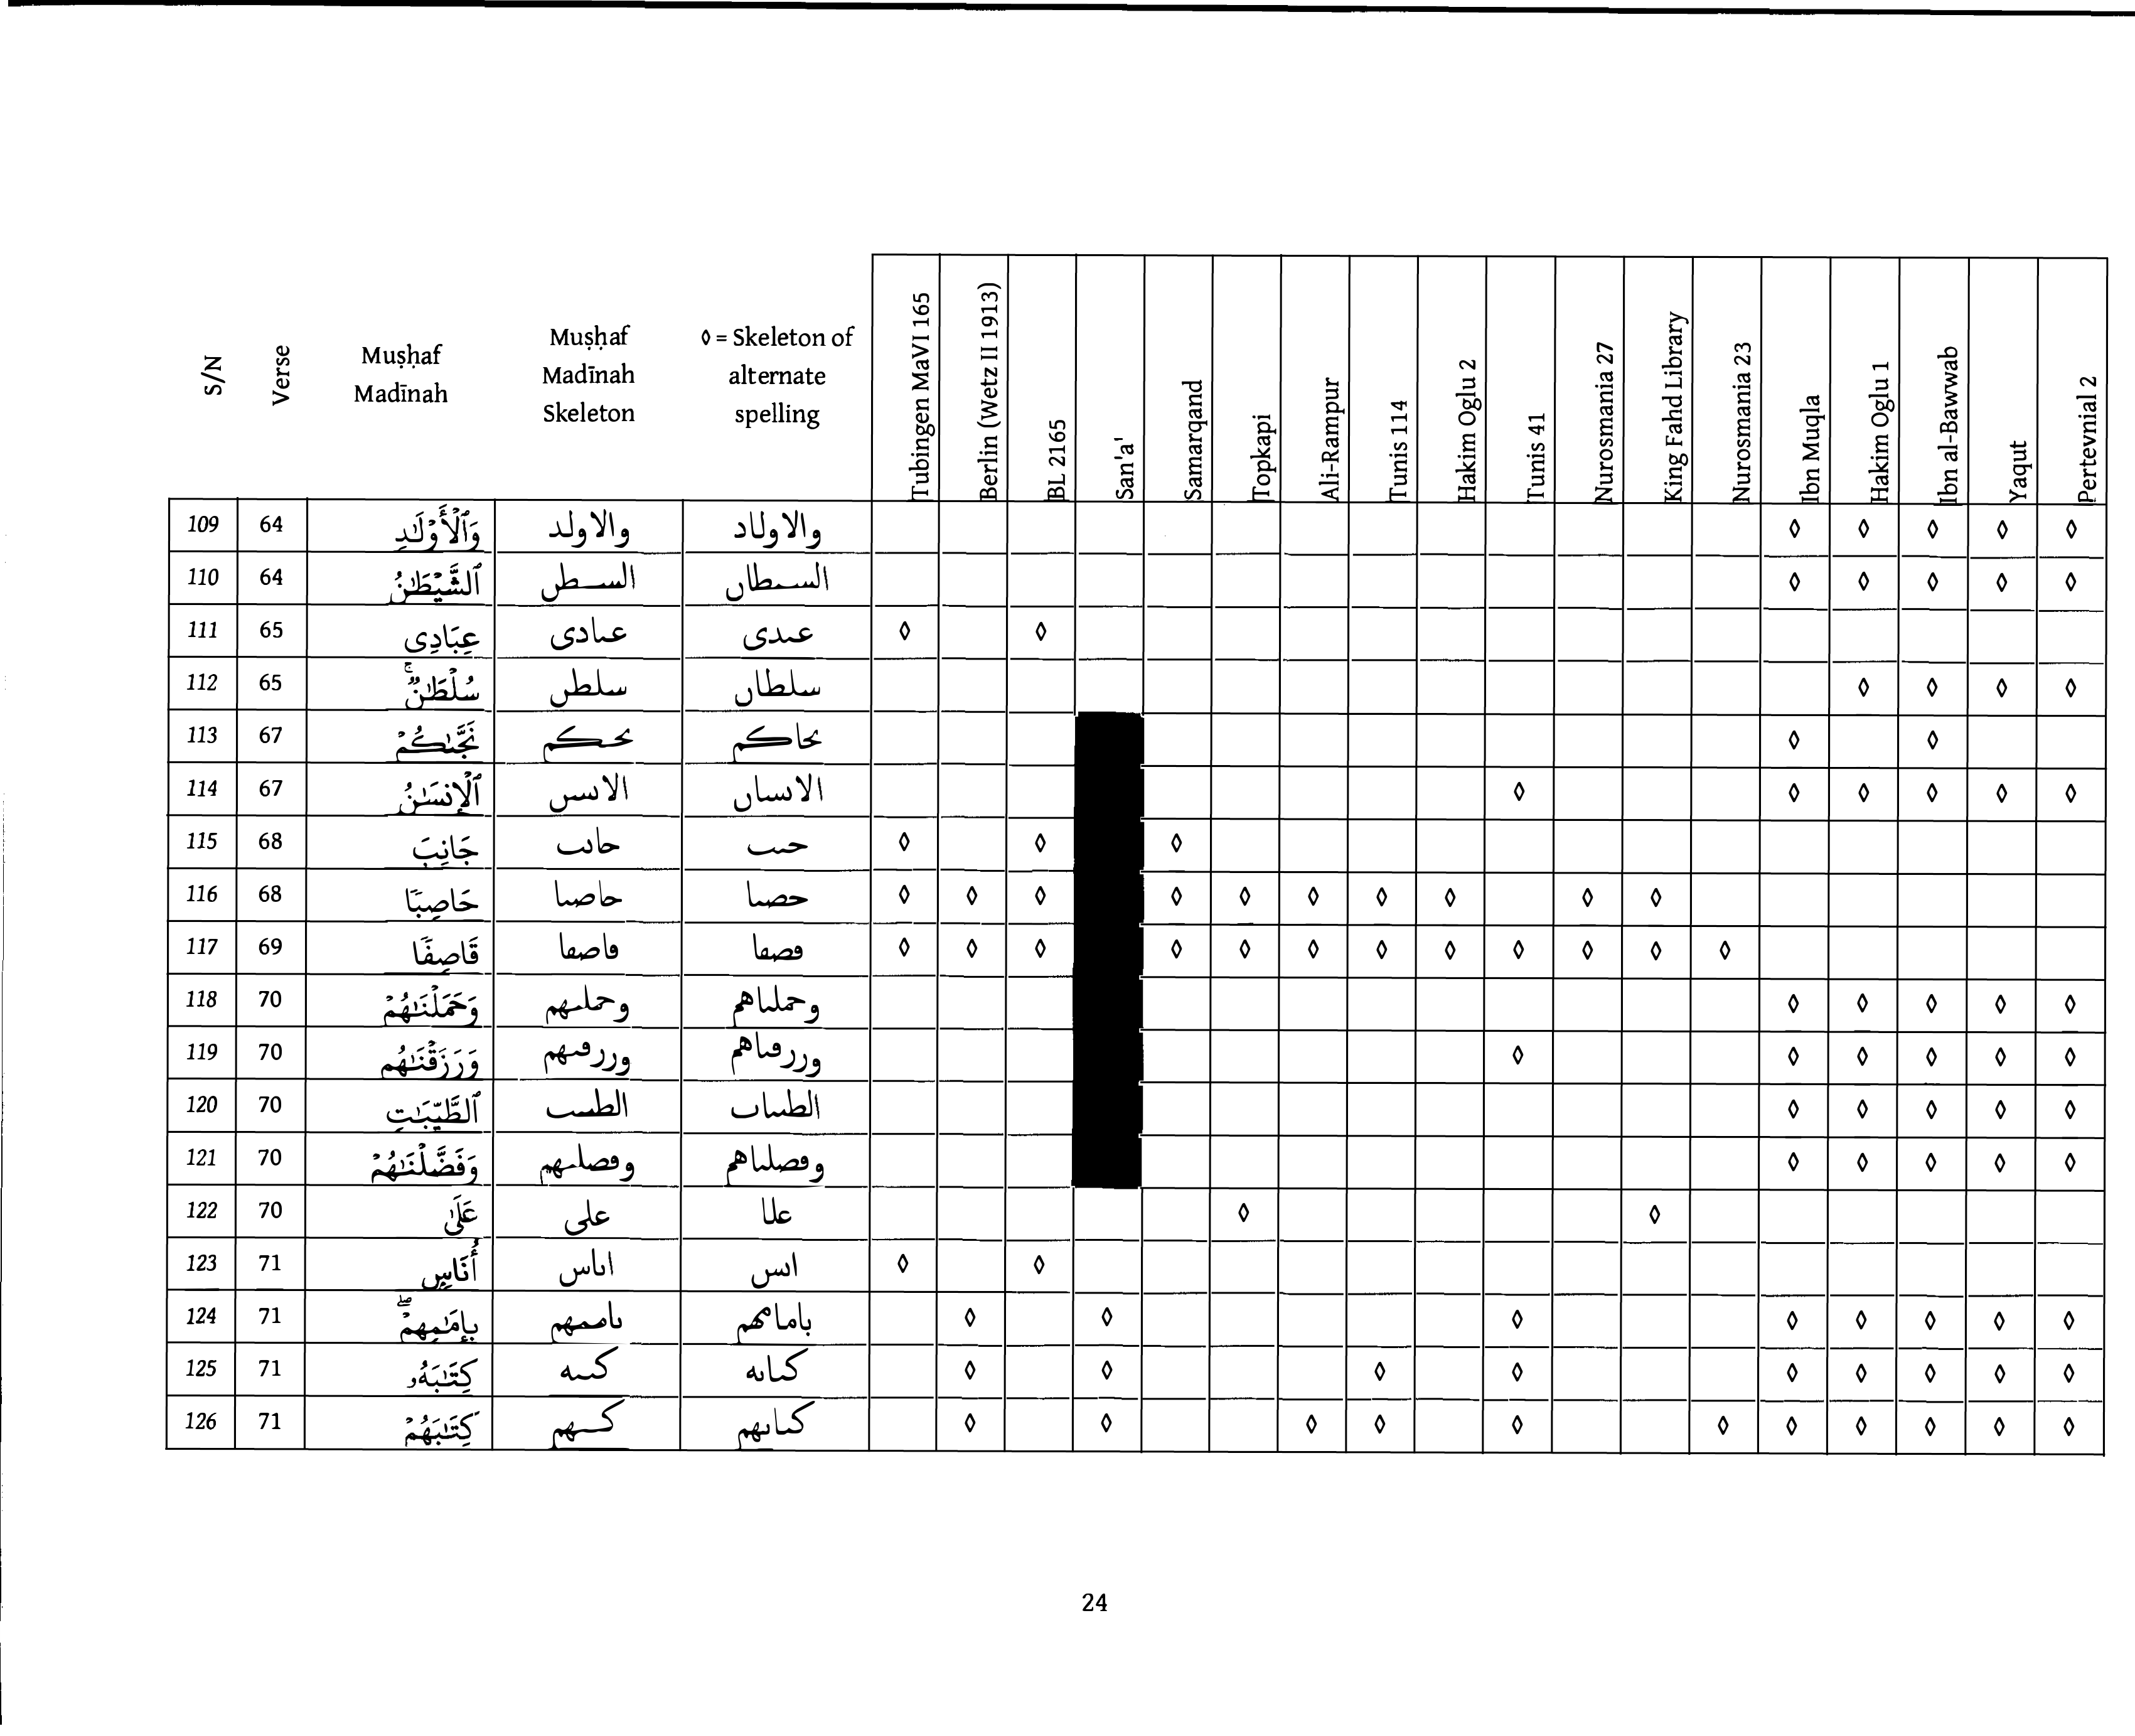 S/N Verse Muṣḥaf Madīnah Muṣḥaf Madīnah Skeleton ◊ = Skeleton of alternate spelling Tubingen MaVI 165 Berlin (Wetz II 1913) BL 2165 San'a' Samarqand Topkapi Ali-Rampur Tunis 114 Hakim Oglu 2 Tunis 41 Nurosmania 27 King Fahd Library Nurosmania 23 Ibn Muqla Hakim Oglu 1 Ibn al-Bawwab Yaqut Pertevnial 2
109 64 وَٱلْأَوْلَـٰدِ والاولد والاولاد ◊ ◊ ◊ ◊ ◊
110 64 ٱلشَّيْطَـٰنُ السٮطں السٮطاں ◊ ◊ ◊ ◊ ◊
111 65 عِبَادِى عٮادى عٮدى ◊ ◊
112 65 سُلْطَـٰنٌۚ سلطں سلطاں ◊ ◊ ◊ ◊
113 67 نَجَّىٰكُمْ ٮحٮكم ٮحاكم ◊ ◊
114 67 ٱلْإِنسَـٰنُ الاٮسں الاٮساں ◊ ◊ ◊ ◊ ◊ ◊
115 68 جَانِبَ حاٮٮ حٮٮ ◊ ◊ ◊
116 68 حَاصِبًا حاصٮا حصٮا ◊ ◊ ◊ ◊ ◊ ◊ ◊ ◊ ◊ ◊
117 69 قَاصِفًا ڡاصڡا ڡصڡا ◊ ◊ ◊ ◊ ◊ ◊ ◊ ◊ ◊ ◊ ◊ ◊
118 70 وَحَمَلْنَـٰهُمْ وحملٮهم وحملٮاهم ◊ ◊ ◊ ◊ ◊
119 70 وَرَزَقْنَـٰهُم وررڡٮهم وررڡٮاهم ◊ ◊ ◊ ◊ ◊ ◊
120 70 ٱلطَّيِّبَـٰتِ الطٮٮٮ الطٮٮاٮ ◊ ◊ ◊ ◊ ◊
121 70 وَفَضَّلْنَـٰهُمْ وڡصلٮهم وڡصلٮاهم ◊ ◊ ◊ ◊ ◊
122 70 عَلَىٰ على علا ◊ ◊
123 71 أُنَاسٍ اٮاس اٮس ◊ ◊
124 71 بِإِمَـٰمِهِمْۖ ٮاممهم ٮامامهم ◊ ◊ ◊ ◊ ◊ ◊ ◊ ◊
125 71 كِتَـٰبَهُۥ كٮٮه كٮاٮه ◊ ◊ ◊ ◊ ◊ ◊ ◊ ◊ ◊
126 71 كِتَـٰبَهُمْ كٮٮهم كٮاٮهم ◊ ◊ ◊ ◊ ◊ ◊ ◊ ◊ ◊ ◊ ◊
24